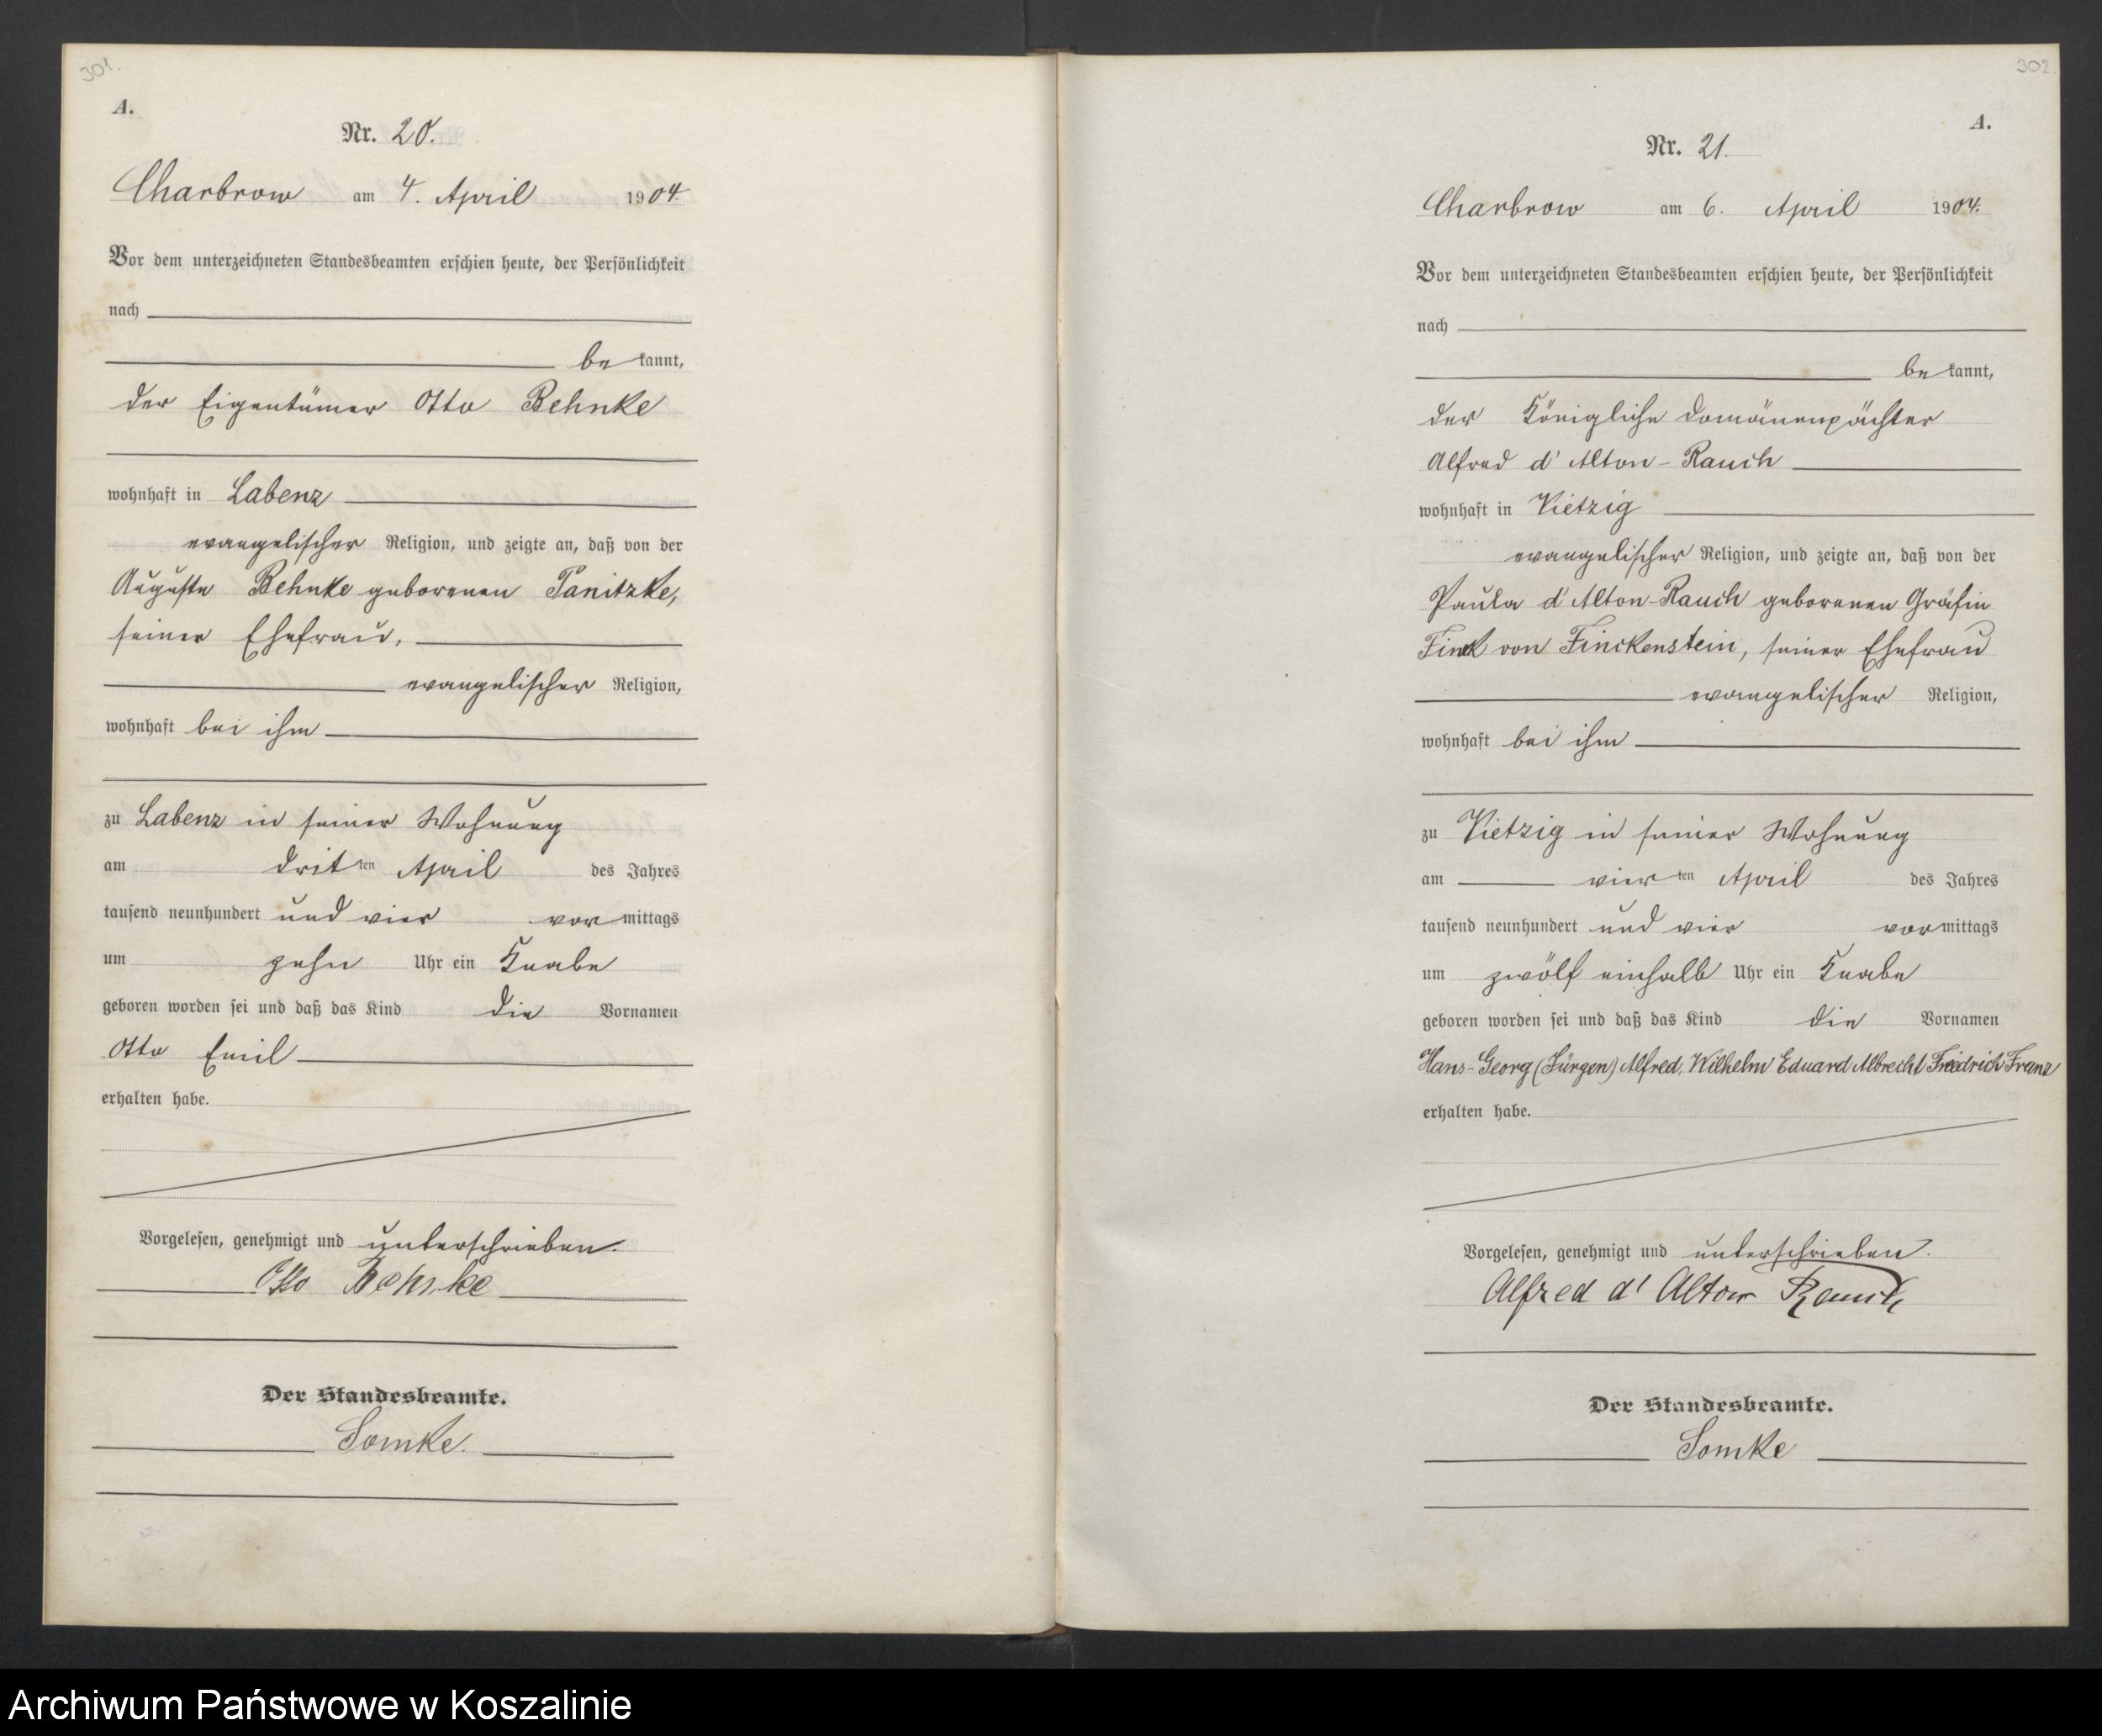 301.
A.
Nr. 20.
Charbrow am 4. April 1904.
Vor dem unterzeichneten Standesbeamten erschien heute, der Persönlichkeit
nach
be kannt,
der Eigentümer Otto Behnke
wohnhaft in Labenz
evangelischer Religion, und zeigte an, daß von der
Auguste Behnke geborenen Panitzke,
seiner Ehefrau,
evangelischer Religion,
wohnhaft bei ihm
zu Labenz in seiner Wohnung
am dritten April des Jahres
tausend neunhundert und vier vor mittags
um zehn Uhr ein Knabe
geboren worden sei und daß das Kind die Vornamen
Otto Emil
erhalten habe.
Vorgelesen, genehmigt und unterschrieben.
Otto Behnke
Der Standesbeamte.
Somke.
302.
A.
Nr. 21.
Charbrow am 6. April 1904.
Vor dem unterzeichneten Standesbeamten erschien heute, der Persönlichkeit
nach
be kannt,
der Königliche Domänenpächter
Alfred d'Alton-Rauch
wohnhaft in Vietzig
evangelischer Religion, und zeigte an, daß von der
Paula d'Alton-Rauch geborenen Gräfin
Finck von Finckenstein, seiner Ehefrau
evangelischer Religion,
wohnhaft bei ihm
zu Vietzig in seiner Wohnung
am vierten April des Jahres
tausend neunhundert und vier vormittags
um zwölf einhalb Uhr ein Knabe
geboren worden sei und daß das Kind die Vornamen
Hans-Georg (Jürgen) Alfred, Wilhelm Eduard Albrecht Friedrich Franz
erhalten habe.
Vorgelesen, genehmigt und unterschrieben.
Alfred d'Alton Rauch
Der Standesbeamte.
Somke
Archiwum Państwowe w Koszalinie